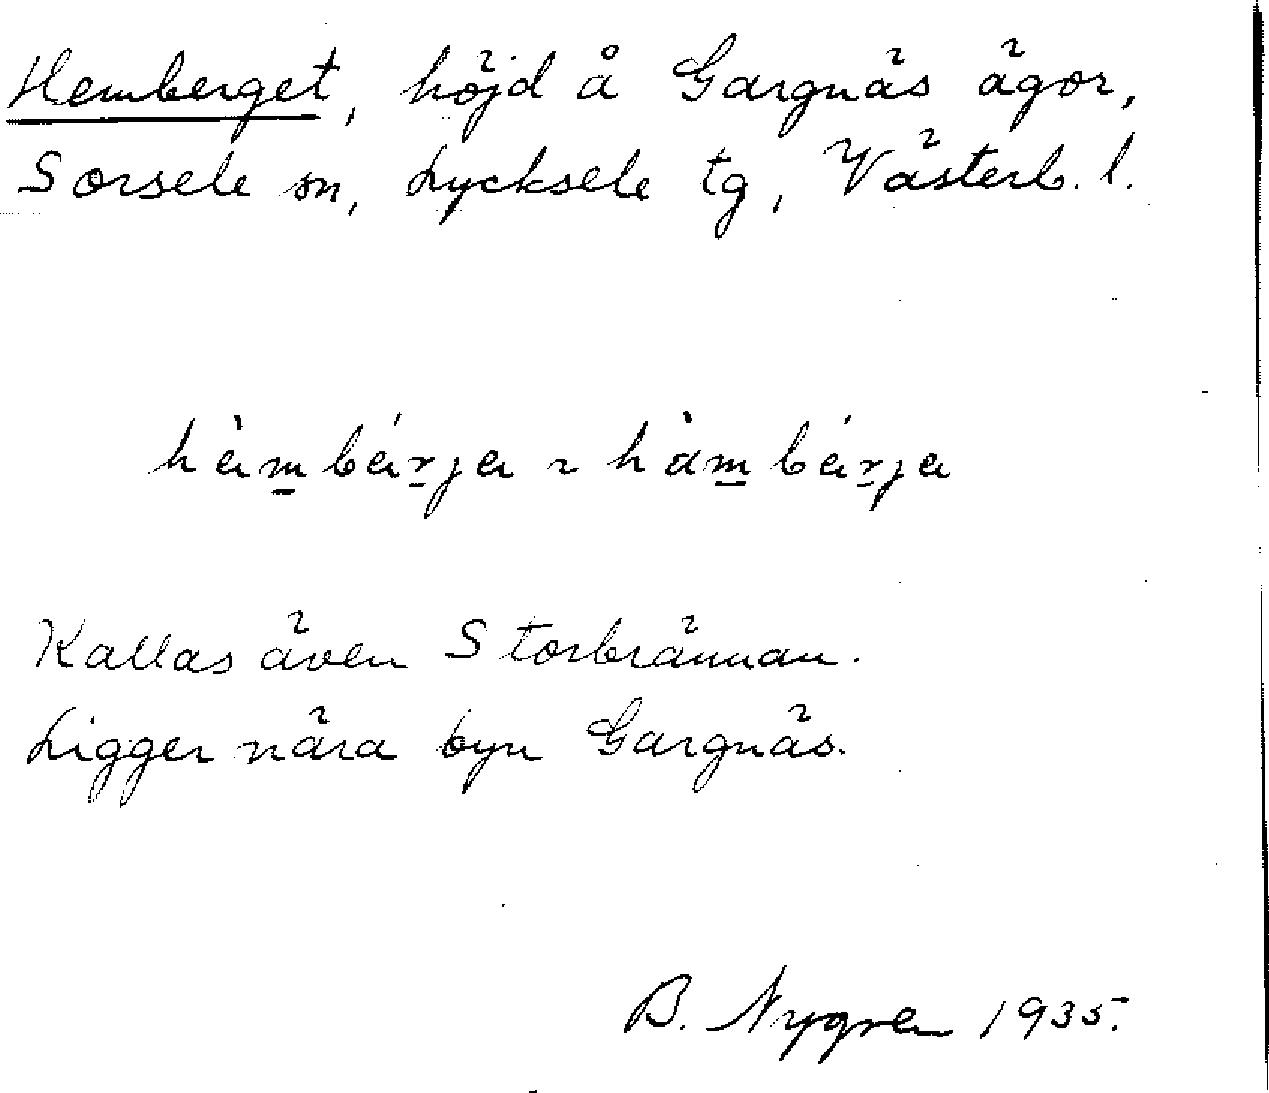 Hemberget, höjd å Gargnäs ägor,
Sorsele sn, Lycksele tg, Västerb. l.
hàm̲bár̲ja ~ hàm̲bár̲ja
Kallas även Storbrännan.
Ligger nära byn Gargnäs.
B. Nygren 1935.